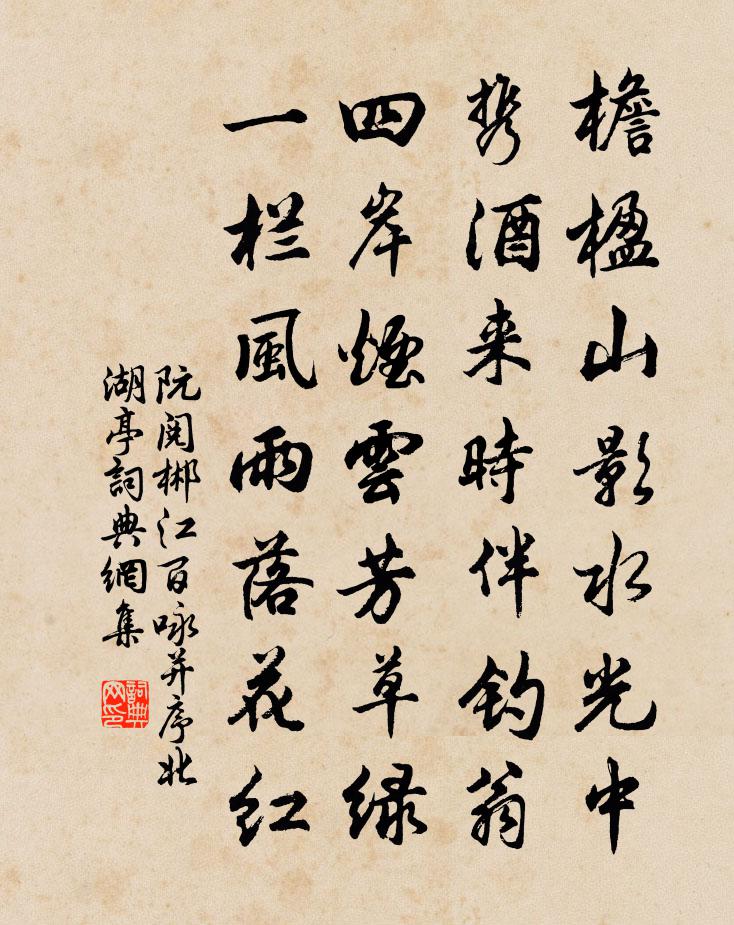 檐楹山影水光中
携酒来時伴钓翁
四岸煙雲芳草绿
一栏風雨落花红
阮阅郴江百咏并序北
湖亭詞典網集
詞典网印